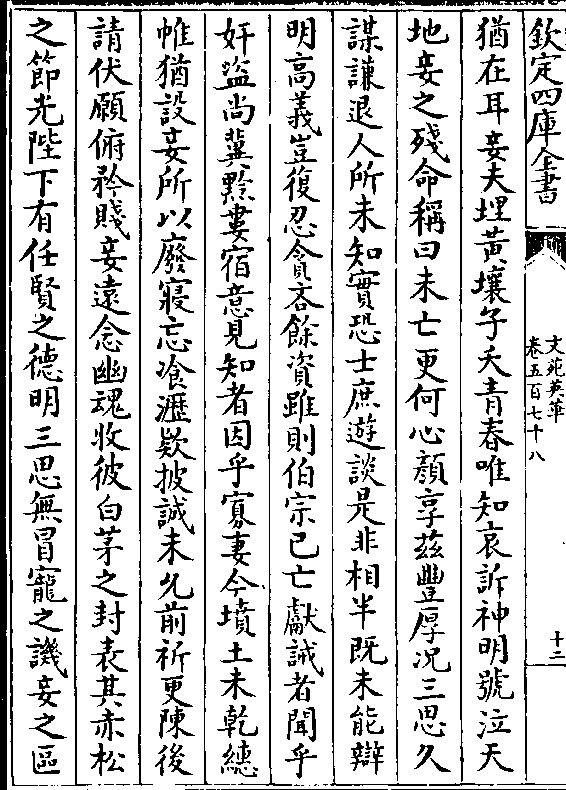 欽定四庫全書
文苑英華
卷五百七十八
十二
猶在耳妾夫埋黄壤子夭青春唯知哀訴神明號泣天
地妾之殘命稱曰未亡更何心顔享兹豐厚况三思久
謀謙退人所未知實恐士庶遊談是非相半既未能辯
明髙義豈復忍貪吝餘資雖則伯宗已亡獻誠者聞乎
奸盗尚冀黔婁宿意見知者因乎寡妻今墳土未乾繐
帷猶設妾所以廢寢忘飡瀝欵披誠未允前祈更陳後
請伏願俯矜賤妾逺念幽魂收彼白茅之封表其赤松
之節光陛下有任賢之德明三思無冒寵之譏妾之區